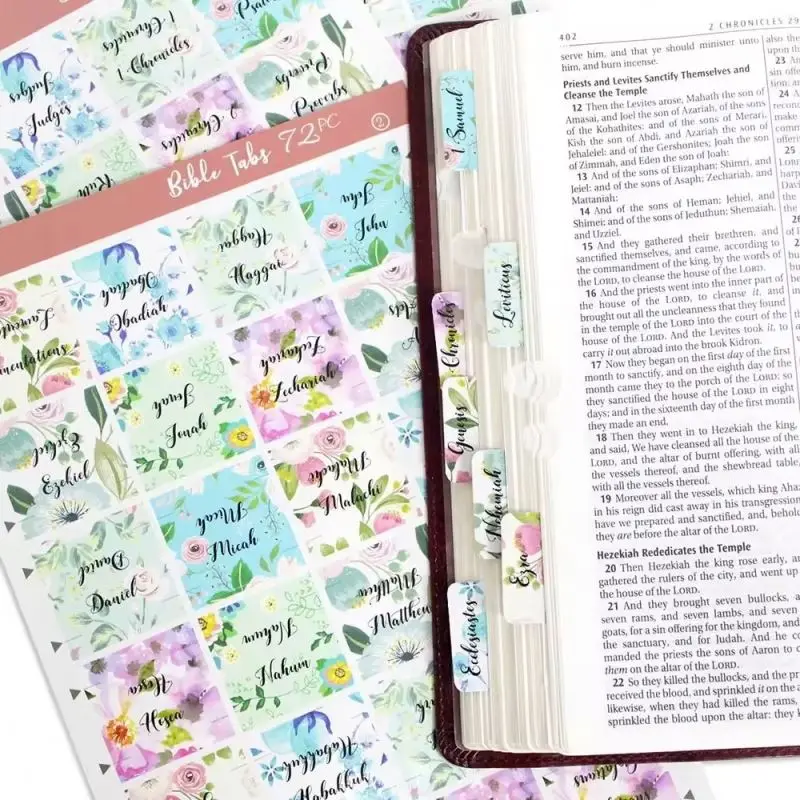 Judges
Judges
1 Chronicles
1 Chronicles
Psalms
Ruth
2 Chronicles
2 Chronicles
Proverbs
Proverbs
Bible Tabs 72PC 2
Lamentations
Obadiah
Obadiah
Haggai
Haggai
John
John
Ezekiel
Ezekiel
Jonah
Jonah
Zechariah
Zechariah
Acts
Daniel
Daniel
Micah
Micah
Malache
Malache
Hosea
Hosea
Nahum
Nahum
Matthew
Matthew
Habakkuk
Habakkuk
1 Samuel
Leviticus
Chronicles
Genesis
Nehemiah
Ezra
Ecclesiastes
402
2 CHRONICLES 29
serve him, and that ye should minister unto
him, and burn incense.
Priests and Levites Sanctify Themselves and
Cleanse the Temple
12 Then the Levites arose, Mahath the son of
Amasai, and Joel the son of Azariah, of the sons
of the Kohathites: and of the sons of Merari,
Kish the son of Abdi, and Azariah the son of
Jehalelel: and of the Gershonites; Joah the son
of Zimmah, and Eden the son of Joah:
13 And of the sons of Elizaphan; Shimri, and
Jeiel: and of the sons of Asaph; Zechariah, and
Mattaniah:
14 And of the sons of Heman; Jehiel, and
Shimei: and of the sons of Jeduthun; Shemaiah,
and Uzziel.
15 And they gathered their brethren, and
sanctified themselves, and came, according to
the commandment of the king, by the words of
the LORD, to cleanse the house of the LORD.
16 And the priests went into the inner part of
the house of the LORD, to cleanse it, and
brought out all the uncleanness that they found
in the temple of the LORD into the court of the
house of the LORD. And the Levites took it, to
carry it out abroad into the brook Kidron.
17 Now they began on the first day of the first
month to sanctify, and on the eighth day of the
month came they to the porch of the LORD: so
they sanctified the house of the LORD in eight
days; and in the sixteenth day of the first month
they made an end.
18 Then they went in to Hezekiah the king,
and said, We have cleansed all the house of the
LORD, and the altar of burnt offering, with all
the vessels thereof, and the shewbread table,
with all the vessels thereof.
19 Moreover all the vessels, which king Ahaz
in his reign did cast away in his transgression,
have we prepared and sanctified, and, behold,
they are before the altar of the LORD.
Hezekiah Rededicates the Temple
20 Then Hezekiah the king rose early, and
gathered the rulers of the city, and went up
the house of the LORD.
21 And they brought seven bullocks, and
seven rams, and seven lambs, and seven
goats, for a sin offering for the kingdom, and
the sanctuary, and for Judah. And he com
manded the priests the sons of Aaron to
them on the altar of the LORD.
22 So they killed the bullocks, and the priests
received the blood, and sprinkled it on the altar:
likewise, when they had killed the rams,
sprinkled the blood upon the altar: they
23
24
25